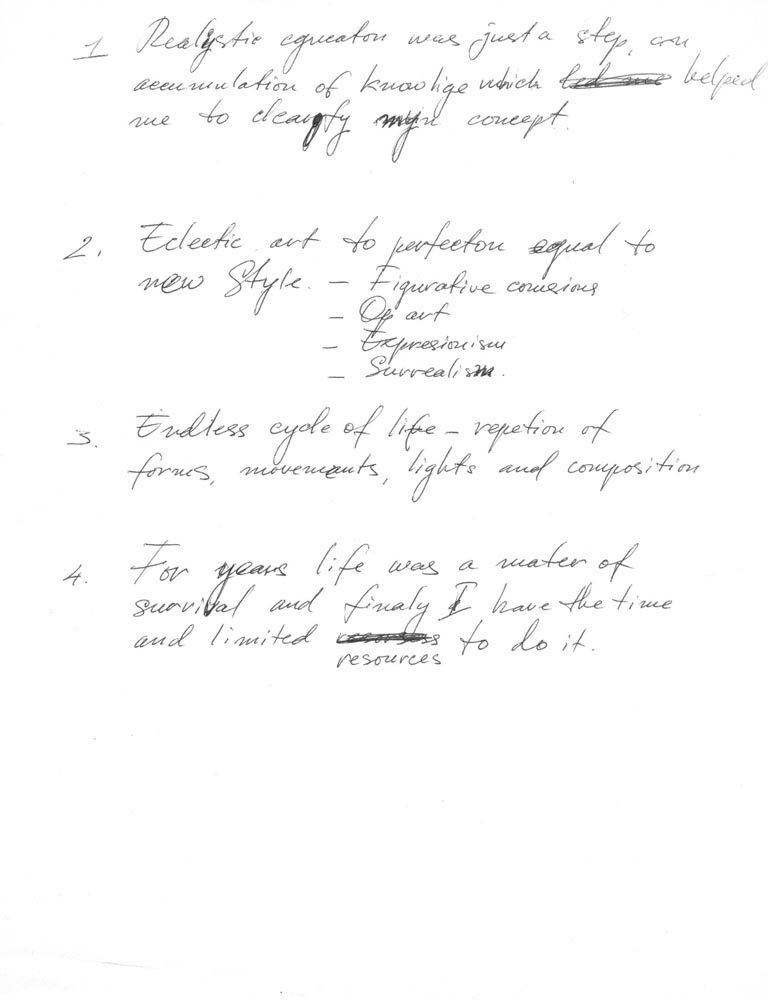 1 Realystic equeaton was just a step, an
accumulation of knowlige which helped
me to clearyfy my concept.
2. Eclectic art to perfecton equal to
new Style. - Figurative
- Op art
- Expresionism
- Surrealism.
3. Endless cycle of life - repetion of
forms, movements, lights and composition
4. For years life was a mater of
survival and finaly I have the time
and limited to do it.
resources